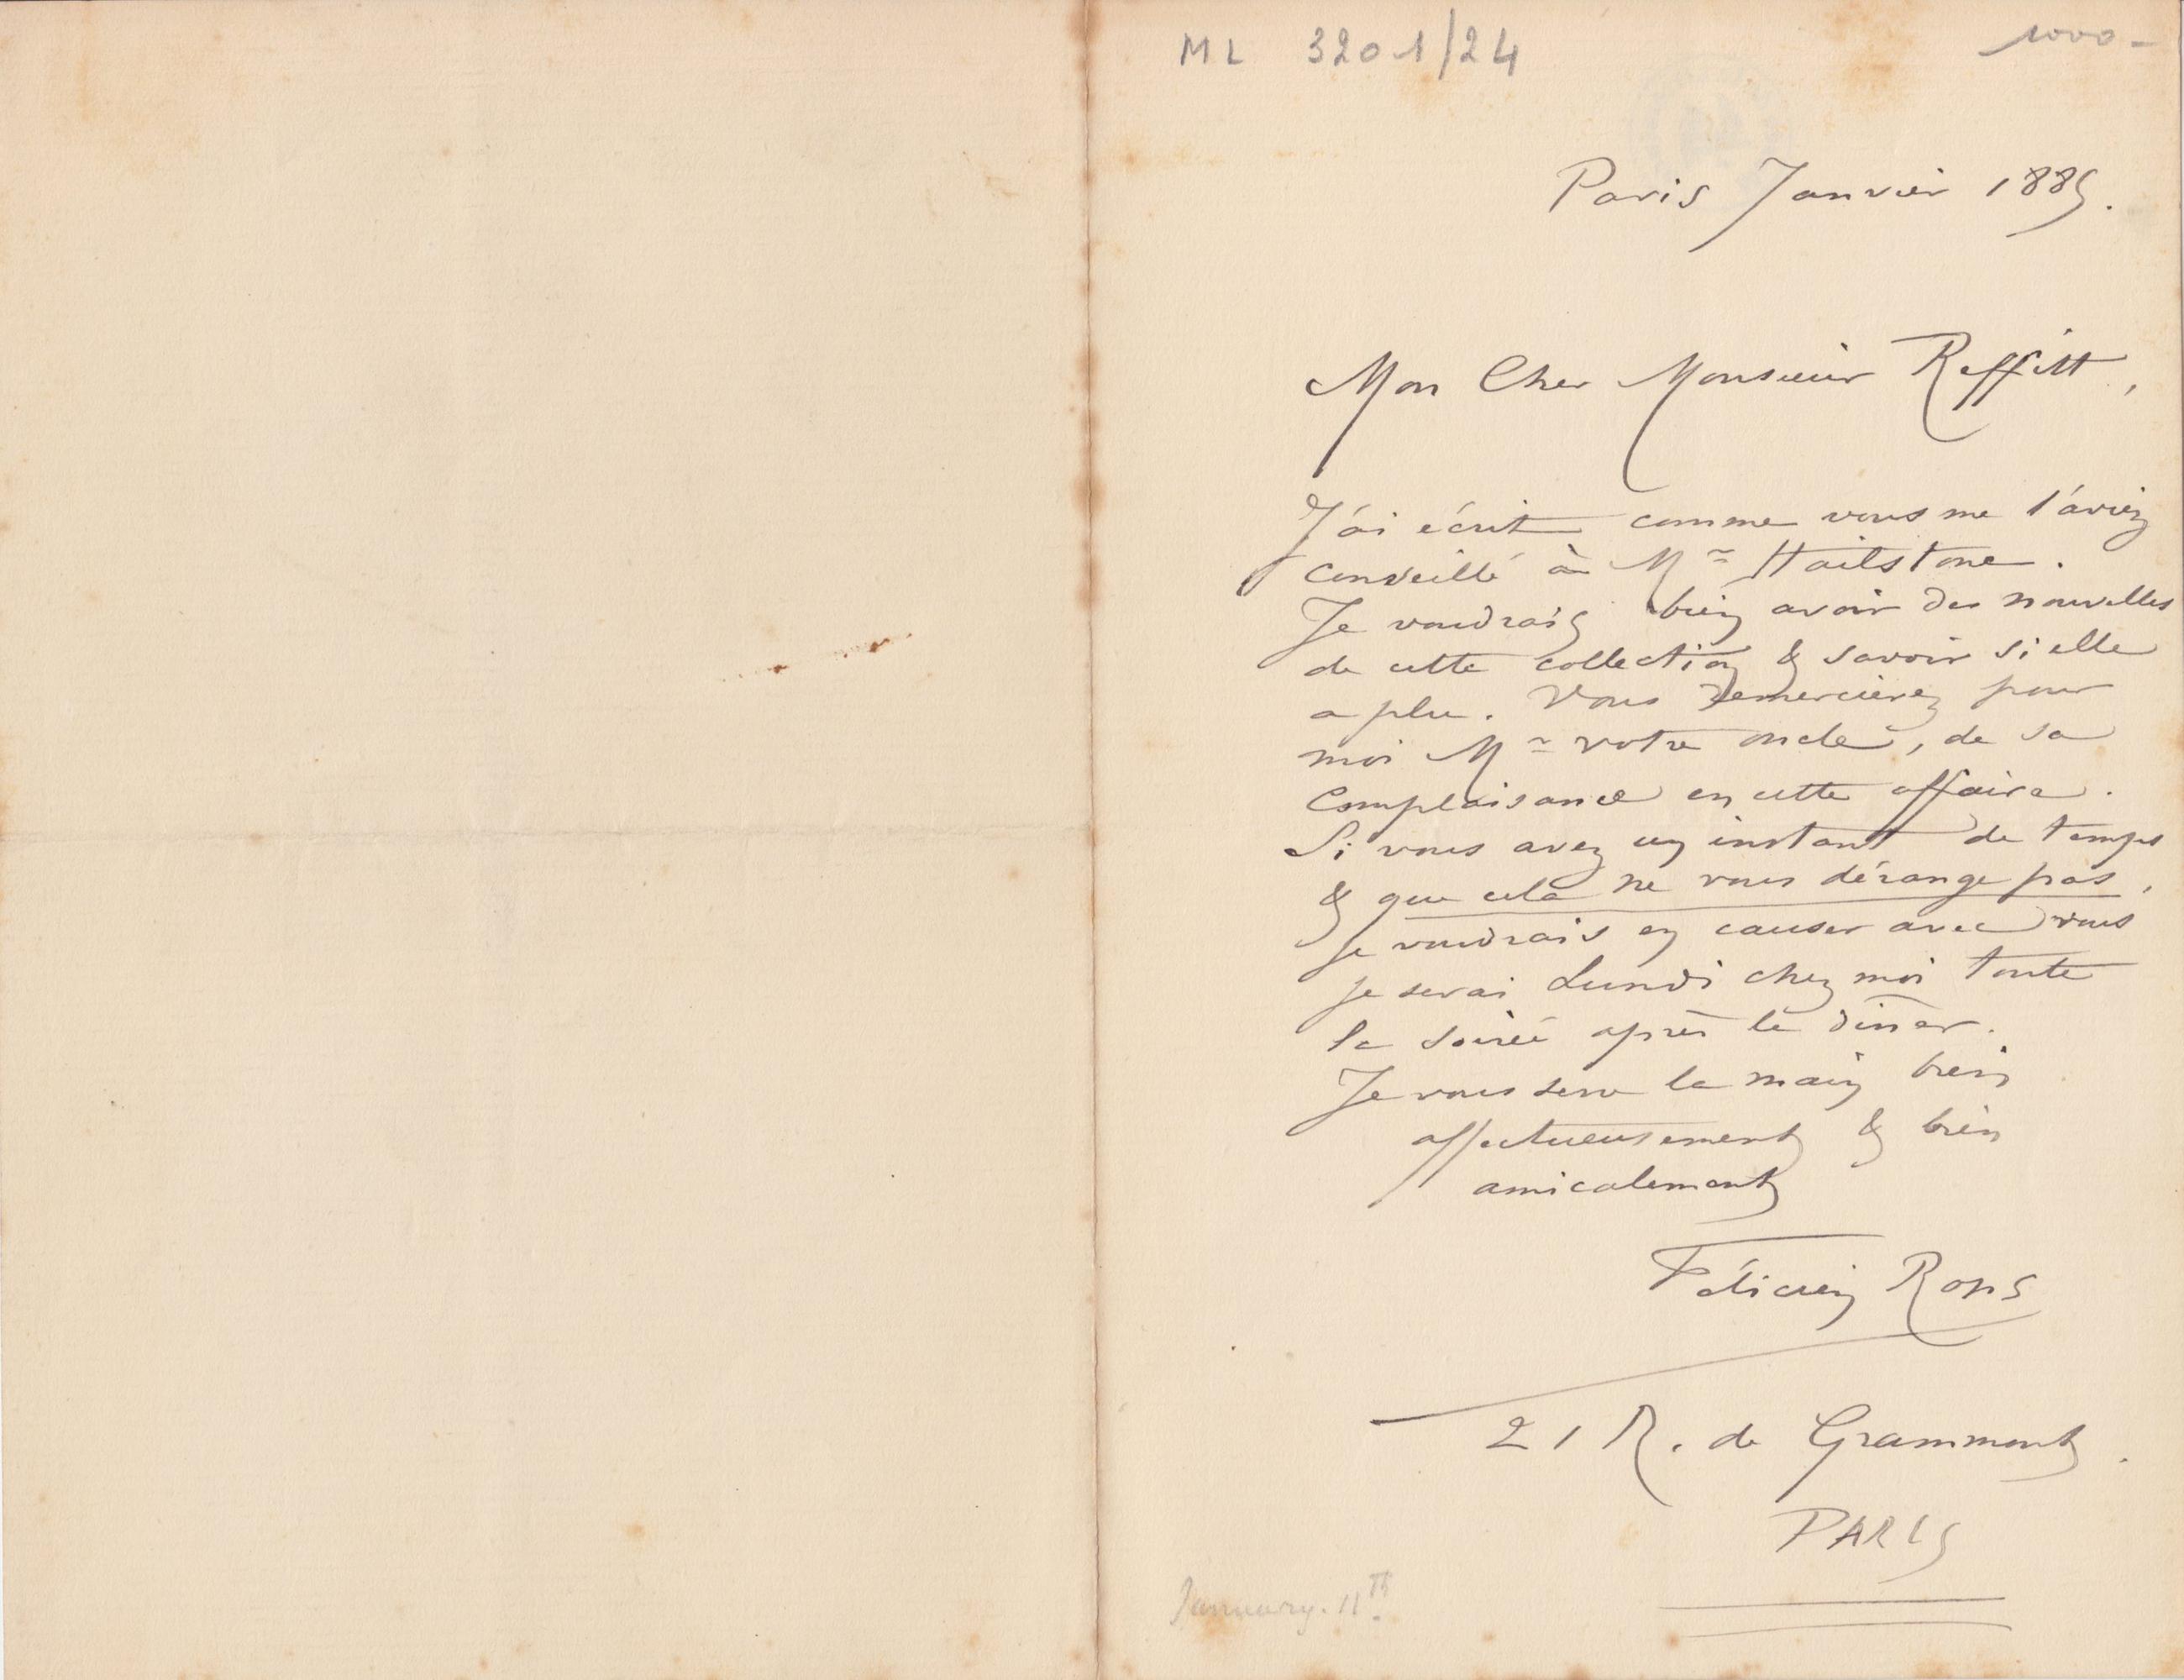 ML 3201/24
1000 -
Paris Janvier 1885.
Mon Cher Monsieur Reffitt,
J'ai écrit comme vous me l'aviez
conseillé à Mr Hailstone.
Je voudrais bien avoir des nouvelles
de cette collection & savoir si elle
a plu. Vous remercierez pour
moi Mr votre oncle, de sa
Complaisance en cette affaire.
Si vous avez un instant de temps
& que cela ne vous dérange pas,
je voudrais en causer avec vous
je serai Lundi chez moi toute
la soirée après le dîner.
Je vous serre la main bien
affectueusement & bien
amicalement
Félicien Rops
21 R. de Grammont.
PARIS
January. 11th